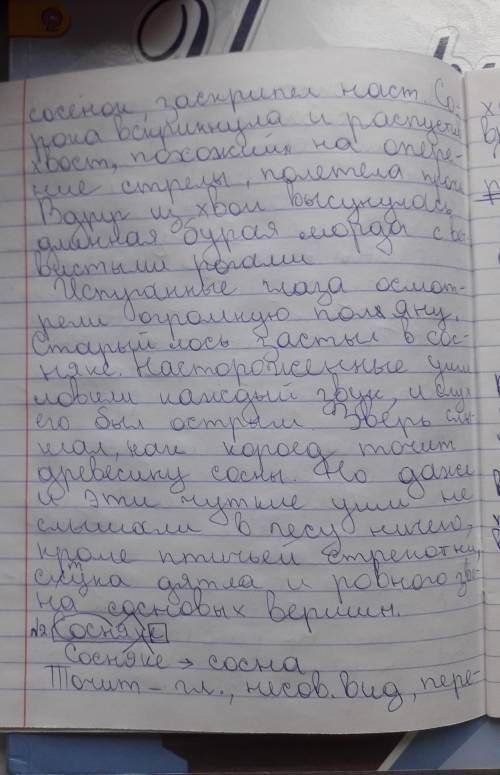 сосенок, заскрипел наст. Со-
рока вскрикнула и распустив
хвост, похожий на опере-
ние стрелы, полетела прочь
Вдруг из хвои высунулась
длинная бурая морда с
вистыми рогами
Испуганные глаза осмот-
рели огромную поляну.
Старый лось застыл в сос-
няке. Настороженные уши
ловили каждый звук, и слух
его был острым. Зверь слы-
шал, как короед точит
древесину сосны. Но даже
и эти чуткие уши не
слышали в лесу ничего,
кроме птичьей стрекотни,
стука дятла и ровного зво-
на сосновых вершин.
№2 Сосняке
Сосняке → сосна
Точит – гл., несов. вид, пере-